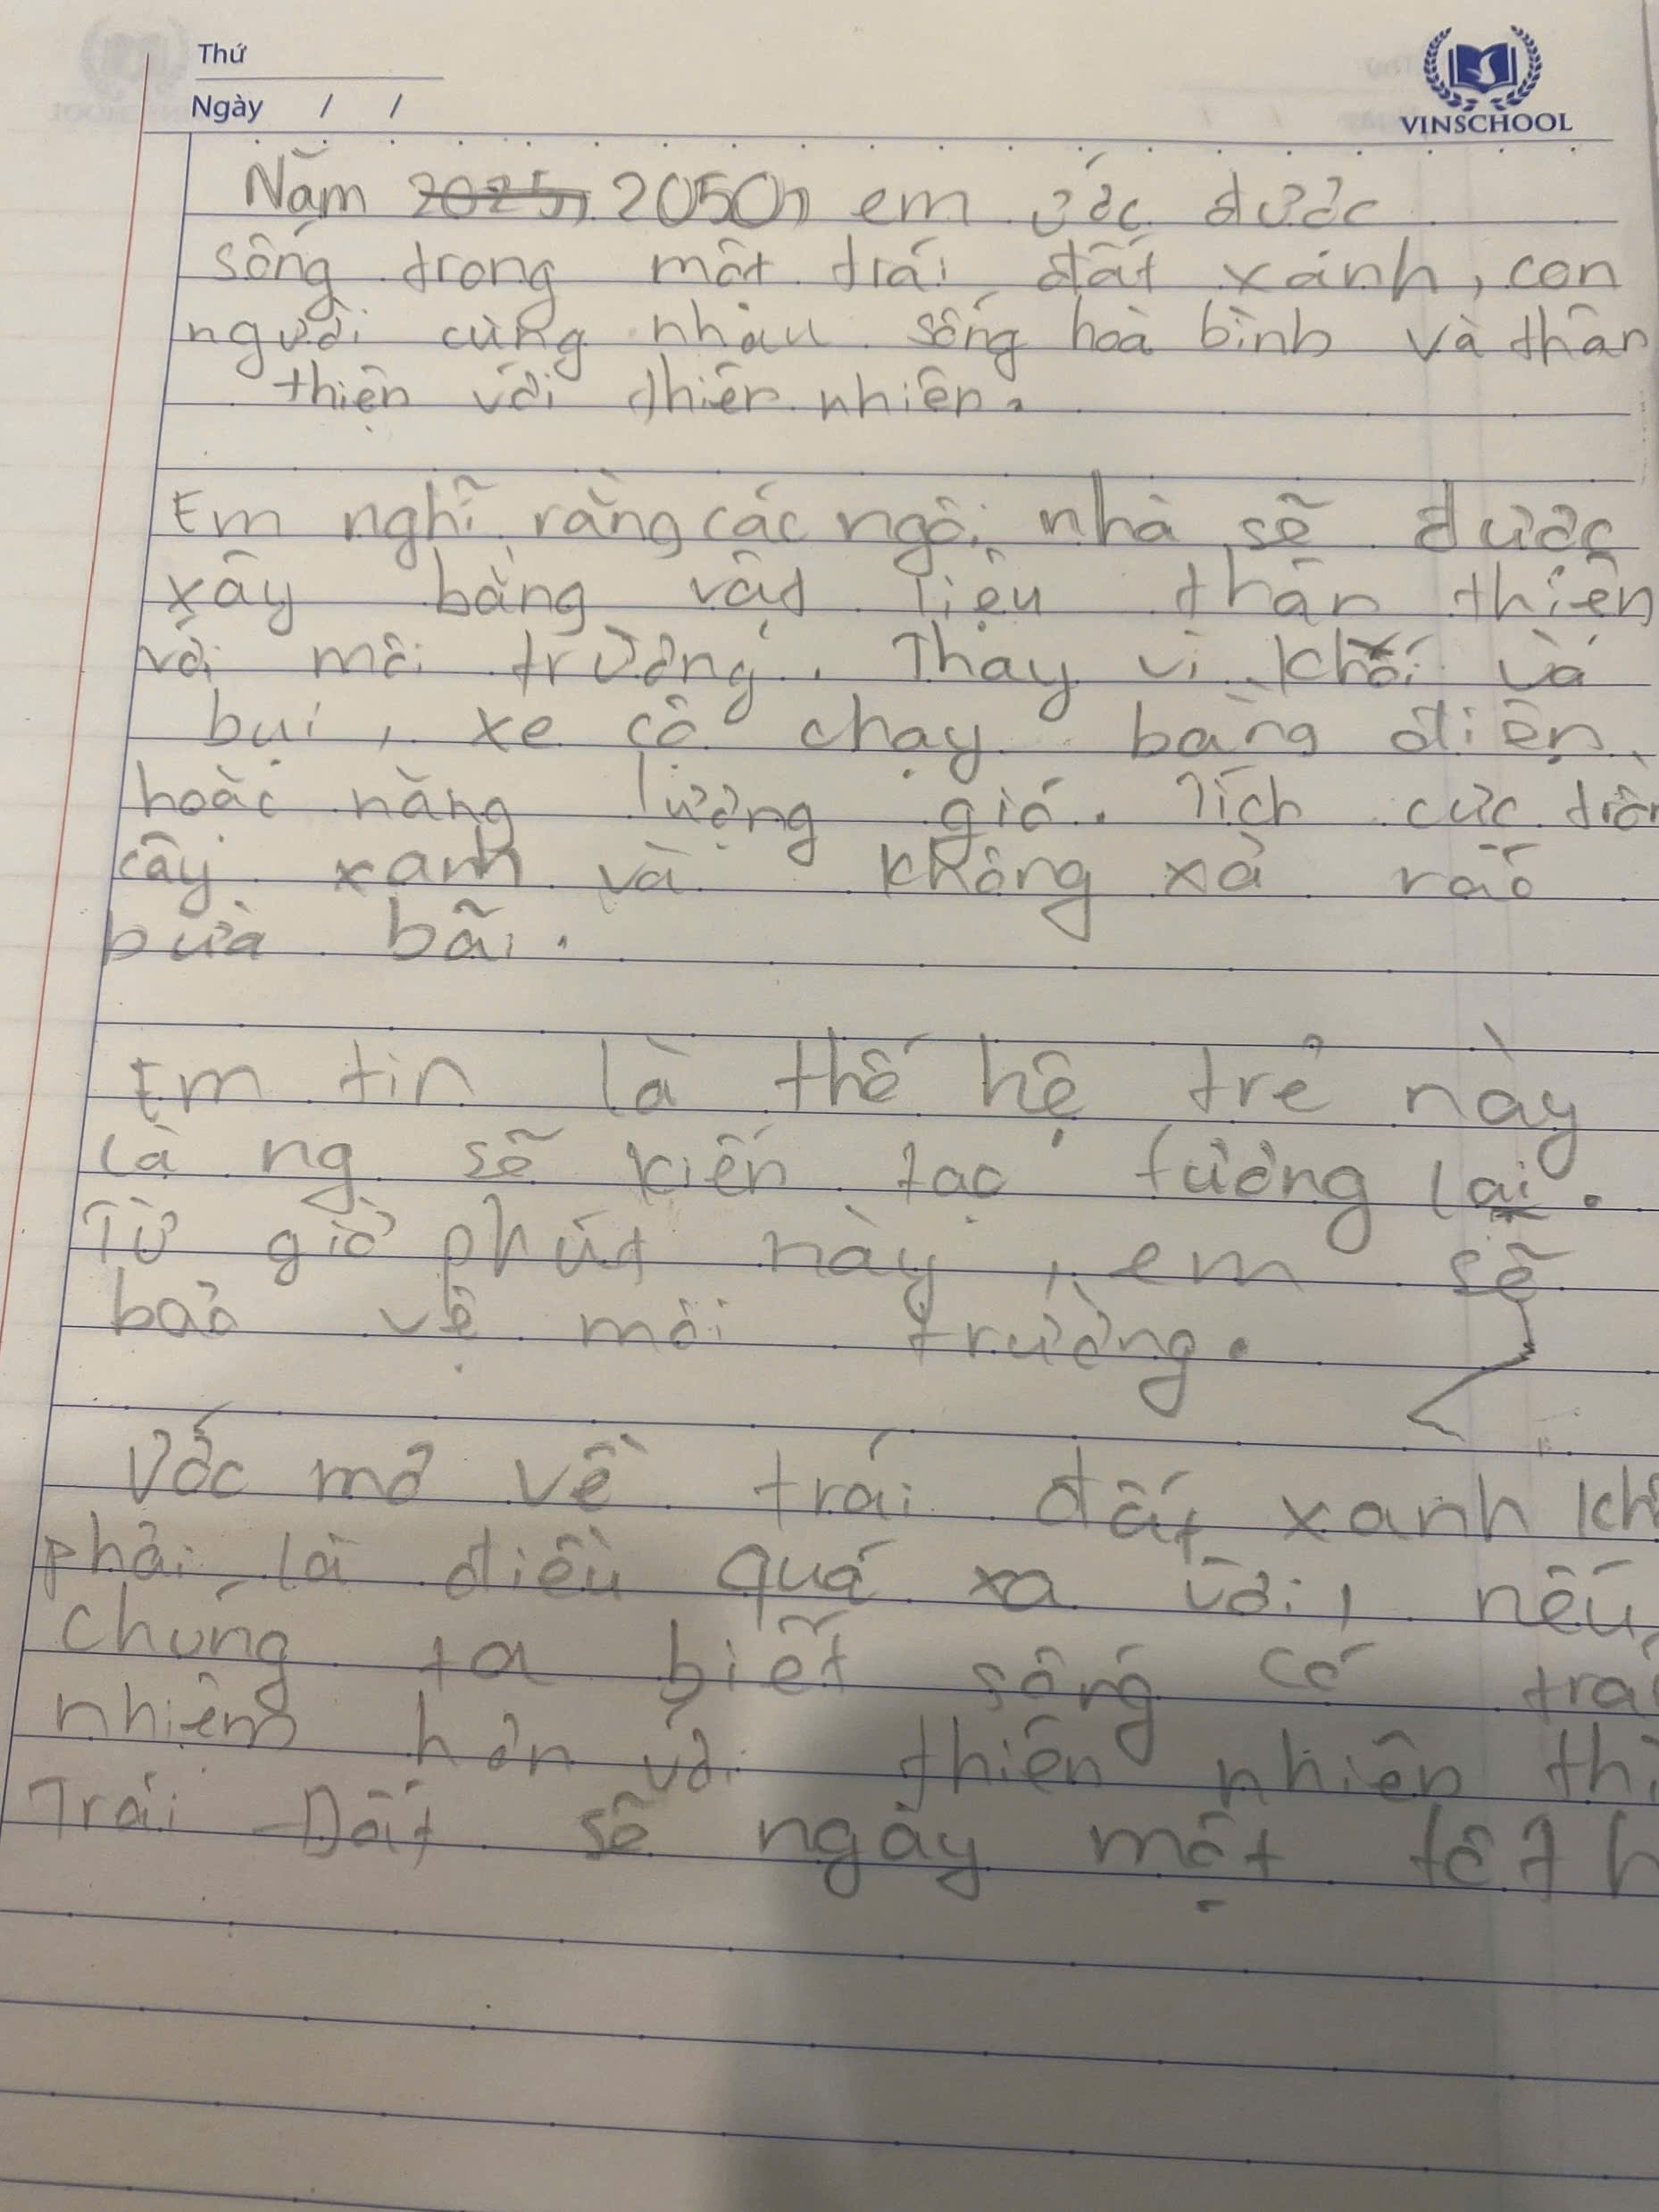 Thứ
Ngày / /
VINSCHOOL
Năm 2025, 2050, em ước được
sống trong một trái đất xanh, con
người cùng nhau sống hoà bình và thân
thiện với thiên nhiên.
Em nghĩ rằng các ngôi nhà sẽ được
xây bằng vật liệu thân thiện
với môi trường. Thay vì khói và
bụi, xe cộ chạy bằng điện
hoặc năng lượng gió. Tích cực
cây xanh và không xả rác
bừa bãi.
Em tin là thế hệ trẻ này
là ng sẽ kiến tạo tương lai.
Từ giờ phút này, em sẽ
bảo vệ môi trường.
Ước mơ về trái đất xanh
phải là điều quá xa vời, nếu
chúng ta biết sống có
nhiệm hơn với thiên nhiên thì
Trái Đất sẽ ngày một tốt